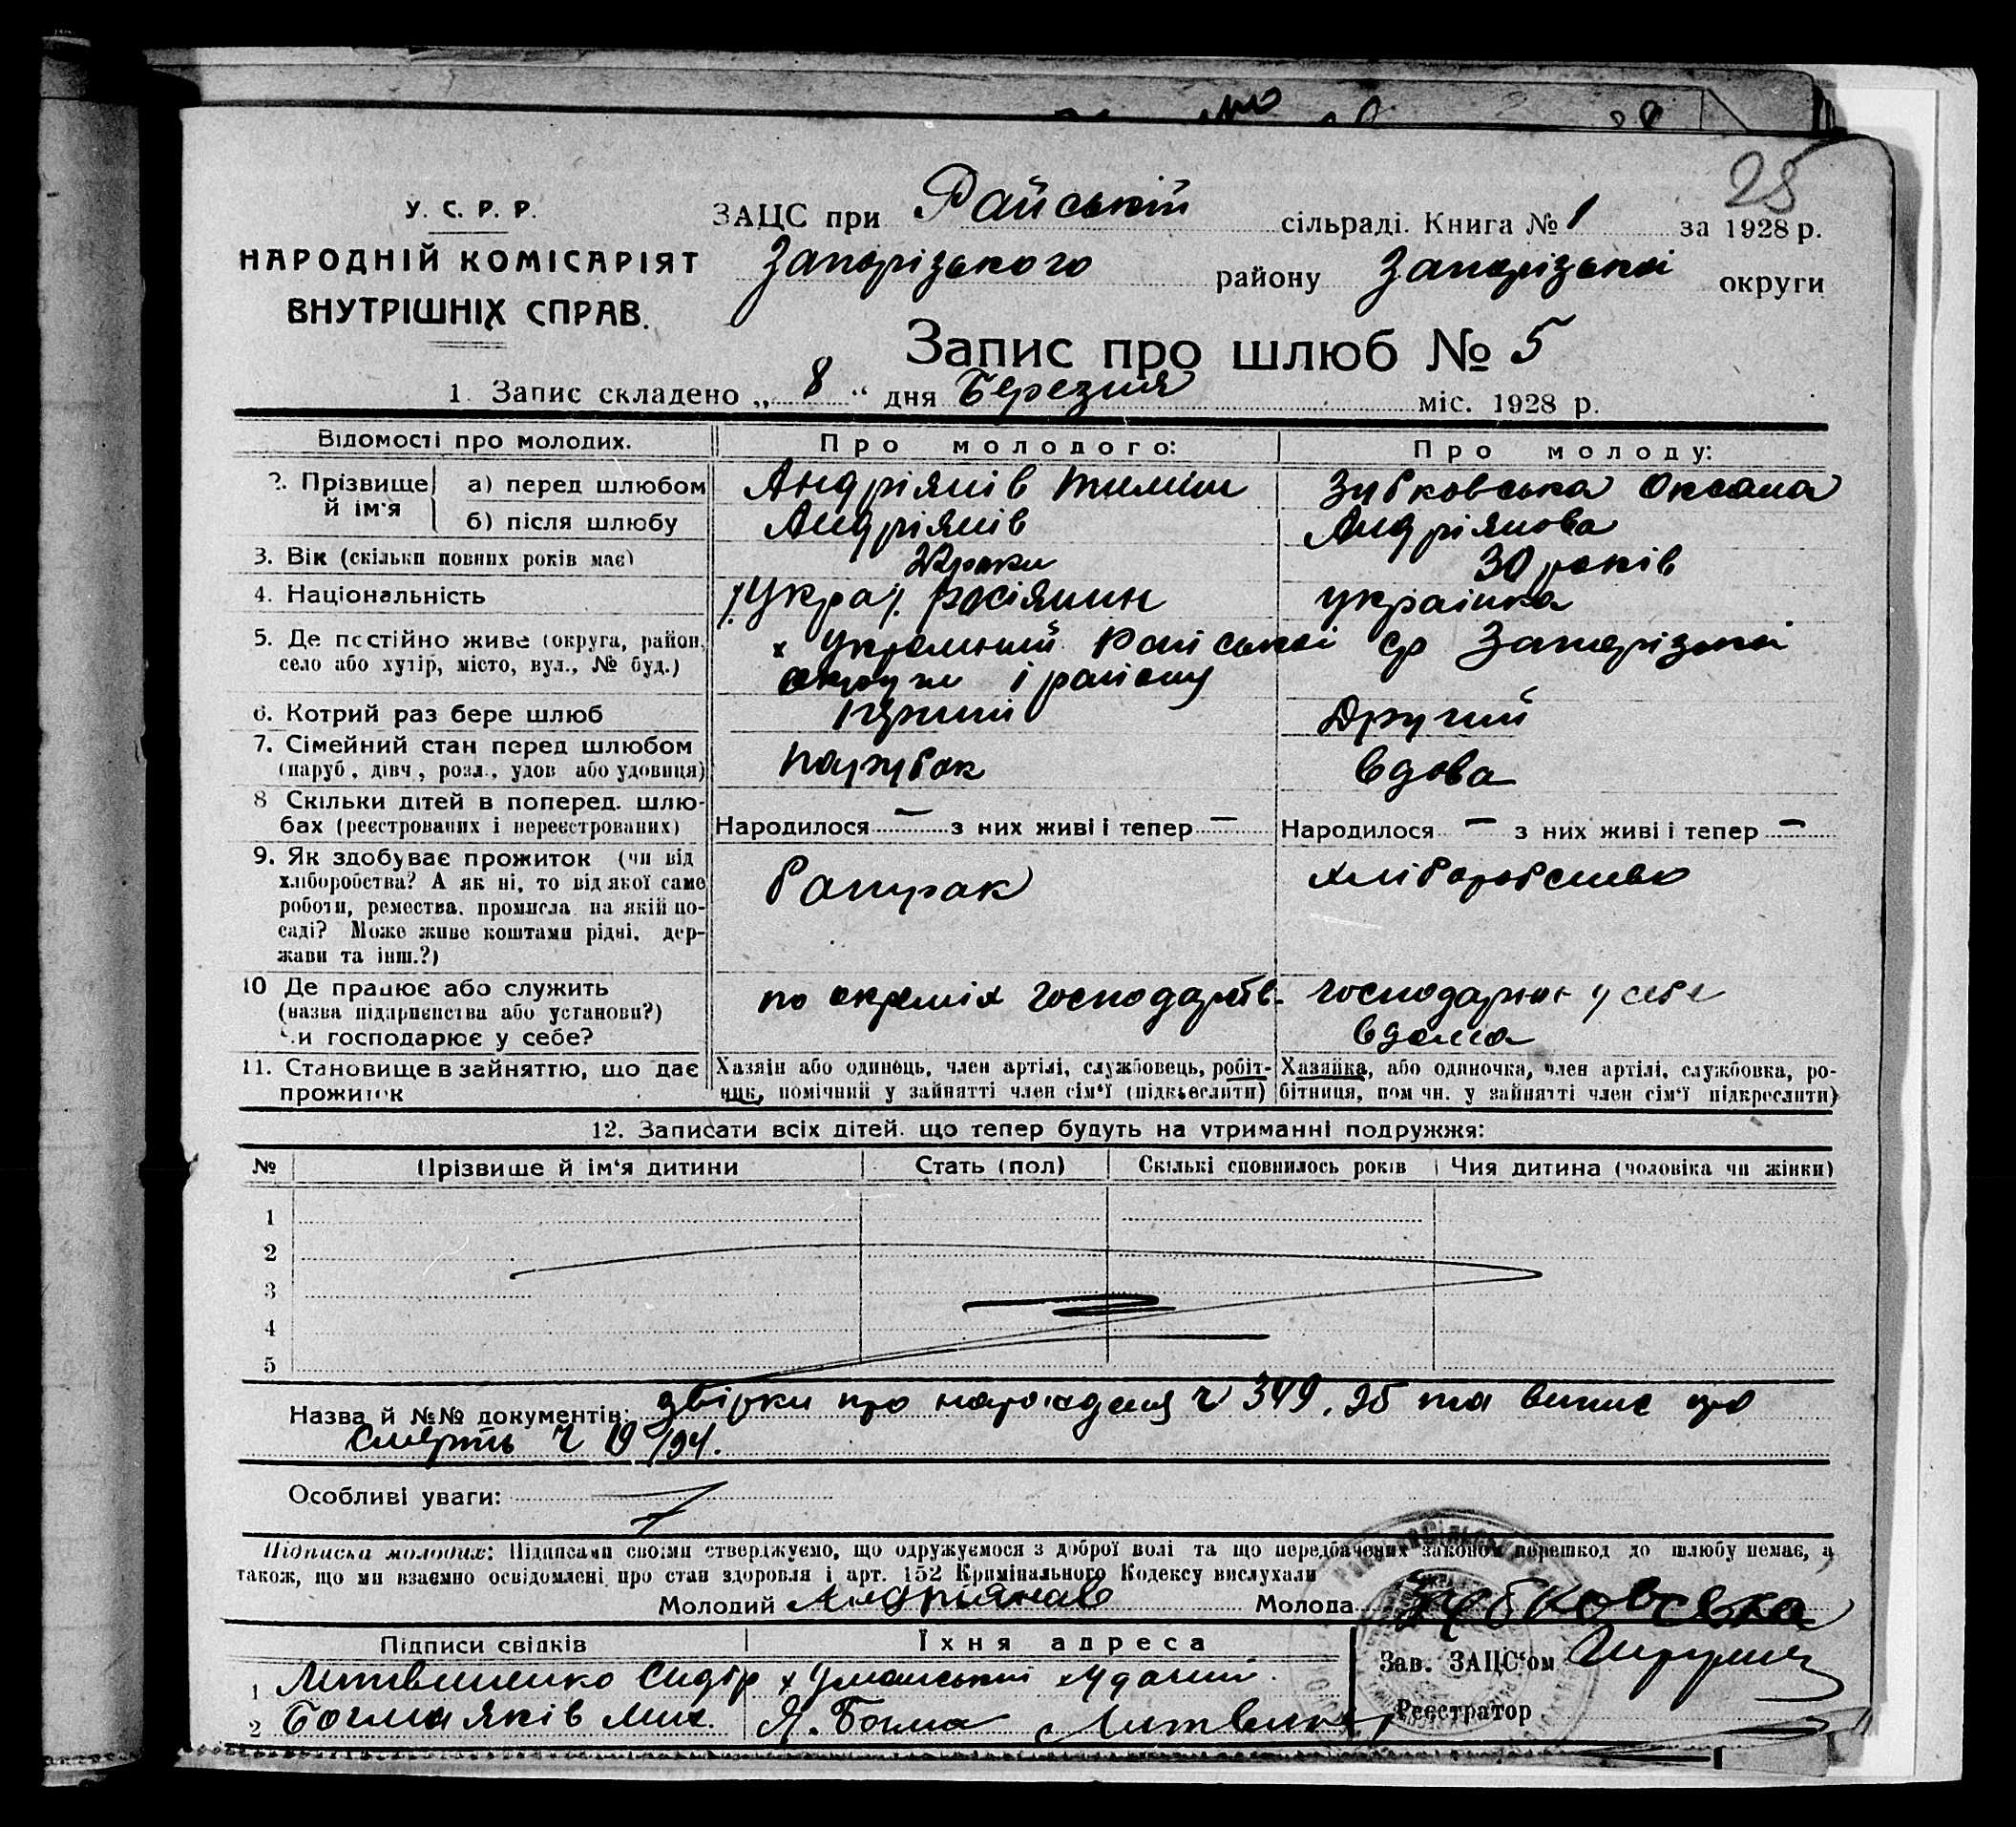 25
У. С. Р. Р.
НАРОДНІЙ КОМІСАРІЯТ
ВНУТРІШНІХ СПРАВ.
ЗАЦС при Райській сільраді. Книга № 1 за 1928 р.
Запорізького району Запорізької округи
Запис про шлюб № 5
1. Запис складено „ 8 “ дня Березня міс. 1928 р.
Відомості про молодих. Про молодого: Про молоду:
2. Прізвище й ім'я а) перед шлюбом Андріянів Зубковська Оксана
б) після шлюбу Андріянів Андріянова
3. Вік (скільки повних років має) роки 30 років
4. Національність /Укра/. росіянин українка
5. Де постійно живе (округа, район, село або хутір, місто, вул., № буд.) х Райської ср Запорізької
округи і району
6. Котрий раз бере шлюб перший Другий
7. Сімейний стан перед шлюбом парубок вдова
(паруб., дівч., розл., удов. або удовиця)
8 Скільки дітей в поперед. шлю-
бах (реєстрованих і нереєстрованих) Народилося — з них живі і тепер — Народилося — з них живі і тепер —
9. Як здобуває прожиток (чи від
хліборобства? А як ні, то від якої саме
роботи, ремества, промисла на якій по-
саді? Може живе коштами рідні, дер-
жави та інш.?)
батрак хліборобство
10 Де працює або служить
(назва підприємства або установи?)
чи господарює у себе?
по окреміх господарств. господарює у себе
вдома
11. Становище в зайняттю, що дає
прожиток
Хазяїн або одинець, член артілі, службовець, робіт-
ник, помічний у зайнятті член сім'ї (підкреслити)
Хазяйка, або одиночка, член артілі, службовка, ро-
бітниця, помічн. у зайнятті член сім'ї підкреслити)
12. Записати всіх дітей, що тепер будуть на утриманні подружжя:
№ Прізвище й ім'я дитини Стать (пол) Скількі сповнилось років Чия дитина (чоловіка чи жінки)
1
2
3
4
5
Назва й №№ документів: про народження ч 349, 25 та випис про
смерть ч
Особливі уваги:
Підписка молодих: Підписами своїми стверджуємо, що одружуємося з доброї волі та що передбачених законом перешкод до шлюбу немає, а
також, що ми взаємно освідомлені про стан здоровля і арт. 152 Кримінального Кодексу вислухали
Молодий Андріянов Молода Зубковська
Підписи свідків Їхня адреса
1 Литвиненко Сидір х Уманський
2 Богма Яків Мих. Я. Богма
Зав. ЗАЦС'ом
Реєстратор